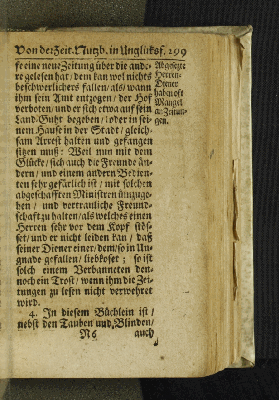 Von der Zeit. Nutzb. in Unglüksf. 299
se eine neue Zeitung über die ande-
re gelesen hat / dem kan wol nichts
beschwerlichers fallen / als / wann
ihm sein Amt entzogen / der Hof
verboten / und er sich etwa auf sein
Land-Guht begeben / oder in sei-
nem Hause in der Stadt / gleich-
sam Arrest halten und gefangen
sitzen muß: Weil nun mit dem
Glücke / sich auch die Freunde än-
dern / und einem andern Bedien-
ten sehr gefärlich ist / mit solchen
abgeschafften Ministren ümzuge-
hen / und vertrauliche Freund-
schaft zu halten / als welches einen
Herren sehr vor dem Kopf stös-
set / und er nicht leiden kan / daß
seiner Diener einer / dem / so in Un-
gnade gefallen / liebkoset; so ist
solch einem Verbanneten den-
noch ein Trost / wenn ihm die Zei-
tungen zu lesen nicht verwehret
wird.
4. In diesem Büchlein ist /
nebst den Tauben und Blinden /
N 6 auch
Abgesetzte
Herren-
Diener
haben oft
Mangel
an Zeitun-
gen.